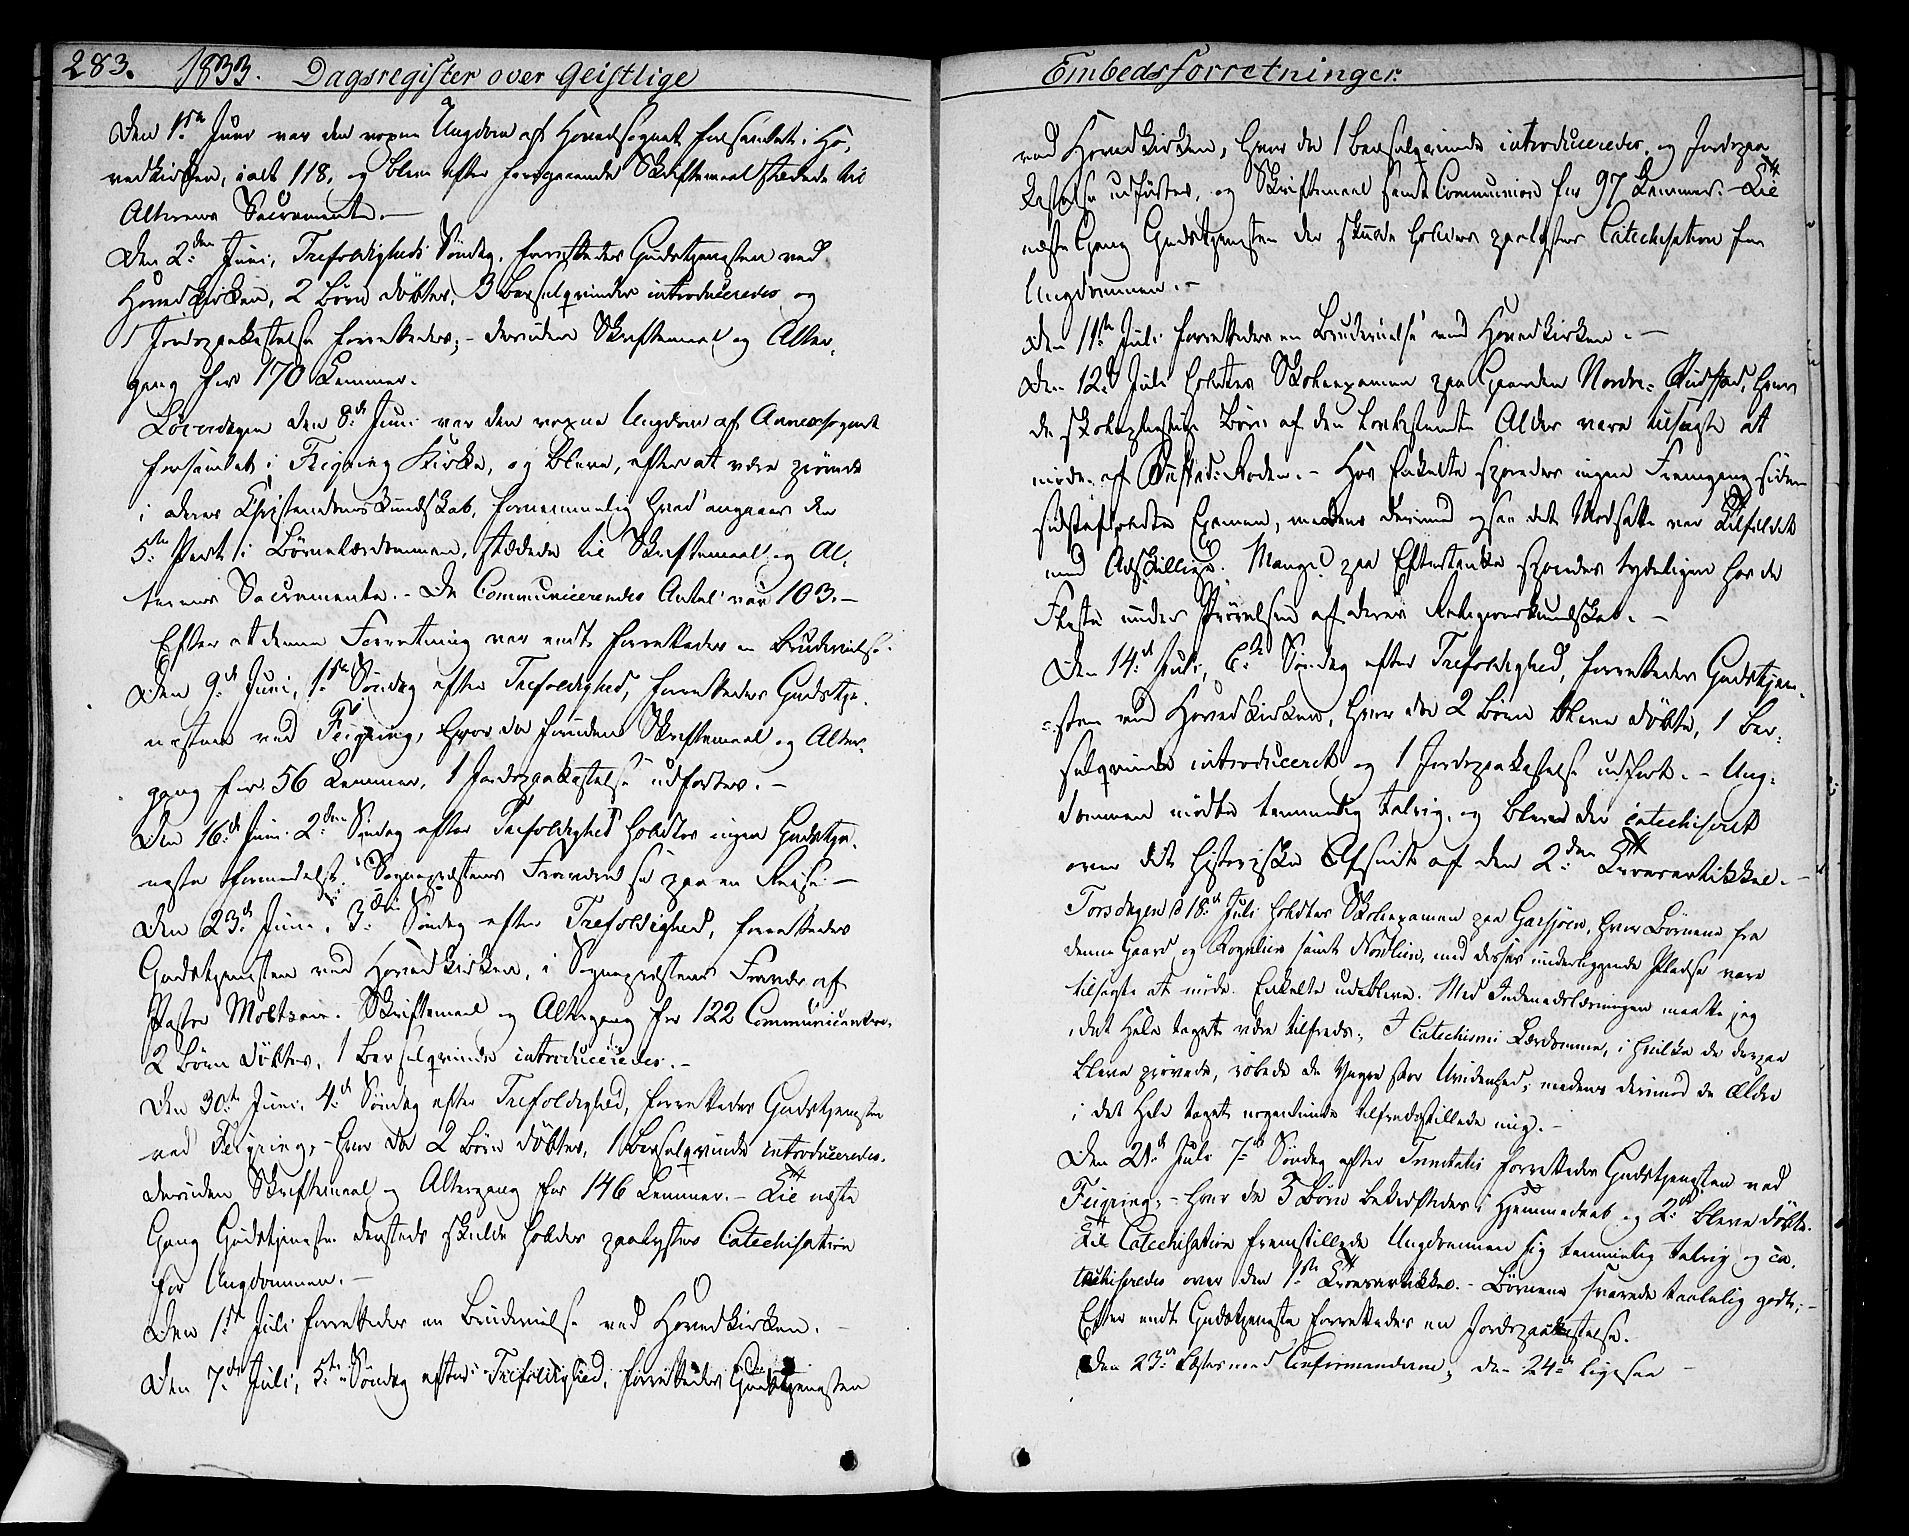 283. 1833. Dagsregister over Geistlige
Den 1ste Juni var den voxne Ungdom af Hovedsognet forsamlet i Ho-
vedkirken, ialt 118, og bleve efter foregaaende Skriftemaal stedede til
Alterens Sacramente. —
Den 2den Juni, Trefoldigheds Søndag, forrettedes Gudstjenesten ved
Hovedkirken, 2 Børn døbtes, 3 Barselqvinder introduceredes og
Jordspaakastelse forrettedes; - desuden Skriftemaal og Alter-
gang for 170 Lemmer.
Løverdagen den 8de Juni var den voxne Ungdom af Annexsognet
forsamlet i Feigring Kirke, og bleve, efter at være prøvede
i deres Christendomskundskab, fornemmelig hvad angaaer den
5te Part i Børnelærdommen, stædede til Skriftemaal og Al-
terens Sacramente. - De Communicerendes Antal var 103. —
Efter at denne Forretning var endt forrettedes en Brudevielse.
Den 9de Juni, 1ste Søndag efter Trefoldighed, forrettedes Gudstje-
nesten ved Feigring, hvor da foruden Skriftemaal og Alter-
gang for 56 Lemmer, 1 Jordspaakastelse udførtes. —
Den 16de Juni 2den Søndag efter Trefoldighed holdtes ingen Gudstje-
neste formedelst Sognepræstens Fraværelse paa en Reise —
Den 23de Juni, 3die Søndag efter Trefoldighed, forrettedes
Gudstjenesten ved Hovedkirken, i Sognepræstens Fravær af
Pastor Moltzau. Skriftemaal og Altergang for 122 Communicantere.
2 Børn døbtes, 1 Barselqvinde introduceredes. —
Den 30te Juni, 4de Søndag efter Trefoldighed, forrettedes Gudstjenesten
ved Feigring, - hvor da 2 Børn døbtes, 1 Barselqvinde introduceredes.
desuden Skriftemaal og Altergang for 146 Lemmer. - Til næste
Gang Gudstjeneste densteds skulde holdes paalystes Catechisation
for Ungdommen. —
Den 1ste Juli forrettedes en Brudevielse ved Hovedkirken. —
Den 7de Juli, 5te Søndag efter Trefoldighed, forrettedes Gudstjenesten
Embedsforretninger.
ved Hovedkirken, hvor da 1 Barselqvinde introduceredes, og Jordspaa-
kastelse udførtes, og Skriftemaal samt Communion for 97 Lemmer. - Til
næste Gang Gudstjenesten der skulde holdes paalystes Catechisation for
Ungdommen. —
Den 11te Juli forrettedes en Brudevielse ved Hovedkirken. —
Den 12te Juli holdtes Skoleexamen paa Gaarden Nordre- Rustad, hvor
de skolepligtige Børn af den lovbestemte Alder vare tilsagte at
møde af Rustad-Roden. - Hos Enkelte sporedes ingen Fremgang siden
sidstafholdte Examen, medens derimod ogsaa det Modsatte var Tilfældet
med Adskillige. Mangel paa Eftertanke sporedes tydeligen hos de
Fleste under Prøvelsen af deres Religionskundskab. —
Den 14de Juli, 6te Søndag efter Trefoldighed, forrettedes Gudstjene-
sten ved Hovedkirken, hvor da 2 Børn bleve døbte, 1 Bar-
selqvinde introduceret og 1 Jordspaakastelse udført. - Ung-
dommen mødte temmelig talrig, og bleve der catechiseret
over det historiske Afsnit af den 2den Troesartikkel. —
Torsdagen d 18de Juli holdtes Skoleexamen paa Garsjøen, hvor Børnene fra
denne Gaard og Rognlien samt Nordlien, med disses underliggende Pladse vare
tilsagte at møde. Enkelte udebleve. Med Indenadslæsningen maatte jeg
i det Hele taget være tilfreds; I Catechismi Lærdomme, i hvilke de derpaa
bleve prøvede, røbede de Yngre stor Uvidenhed, medens derimod de Ældre
i det Hele taget nogenlunde tilfredsstillede mig. —
Den 21de Juli 7de Søndag efter Trinitatis forrettedes Gudstjenesten ved
Feigring, - hvor da 3 Børn bekræftedes i Hjemmedaab og 2de bleve døbte.
Til Catechisation fremstillede Ungdommen sig temmelig talrig og ca-
techiseredes over den 1ste Troesartikkel. - Børnene svarede taalelig godt; -
Efter endt Gudstjeneste forrettedes en Jordspaakastelse.
Den 23de læstes med Confirmanderne, den 24de ligesaa —